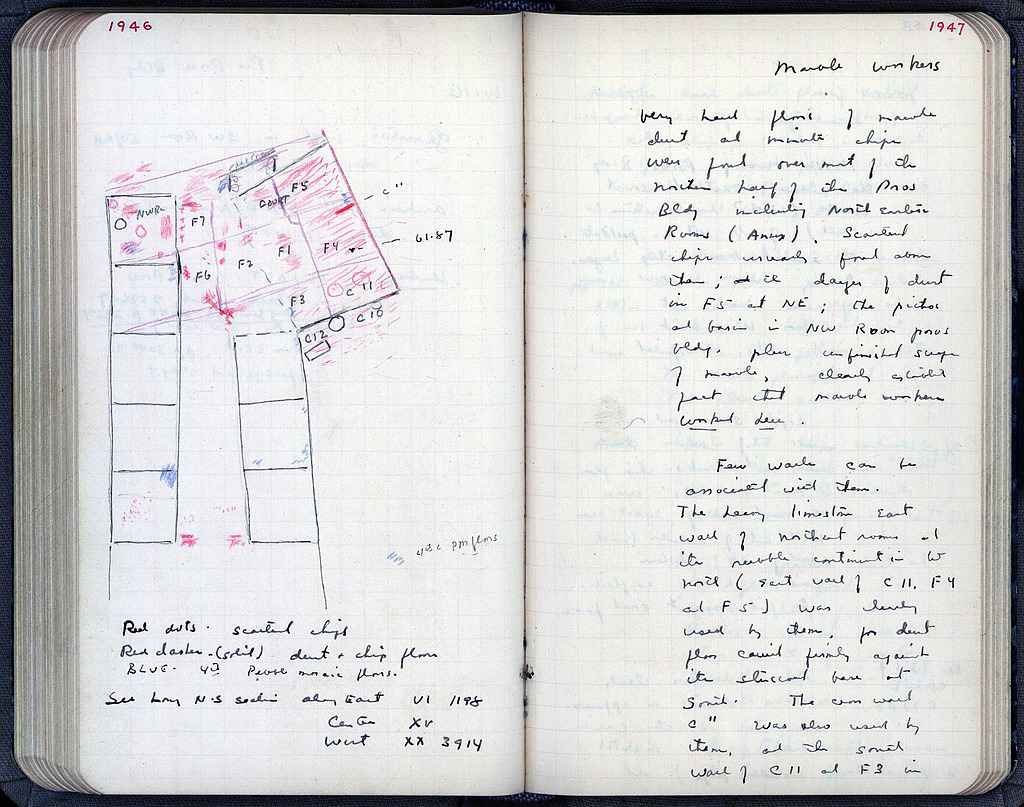 1946
NWR
F7
F6
F2
COURT
F5
F1
F4
F3
C 11
C 10
C12
C"
61.87
4th c pm floors
Red dots. scattered chips
Red dashes-(solid) dust + chip floors
BLUE. 4th Pebble mosaic floors.
See long N-S section along East VI 1198
Center XV
West XX 3914
1947
Marble workers
Very hard floors of marble
dust and minute chips
were found over most of the
northern half of the Poros
Bldg including North Eastern
Rooms (Annex). Scattered
chips usually found above
them; layers of dust
in F5 at NE; the pithos
and basin in NW Room poros
bldg. plus unfinished scraps
of marble, clearly exhibit
fact that marble workers
worked here.
Few walls can be
associated with them.
The heavy limestone East
wall of northeast rooms and
its probable continuation to
north (East wall of C 11, F4
and F5) was clearly
used by them, for dust
floor carried firmly against
its stuccoed base at
South. The cross wall
C" was also used by
them, and the south
wall of C 11 and F3 in